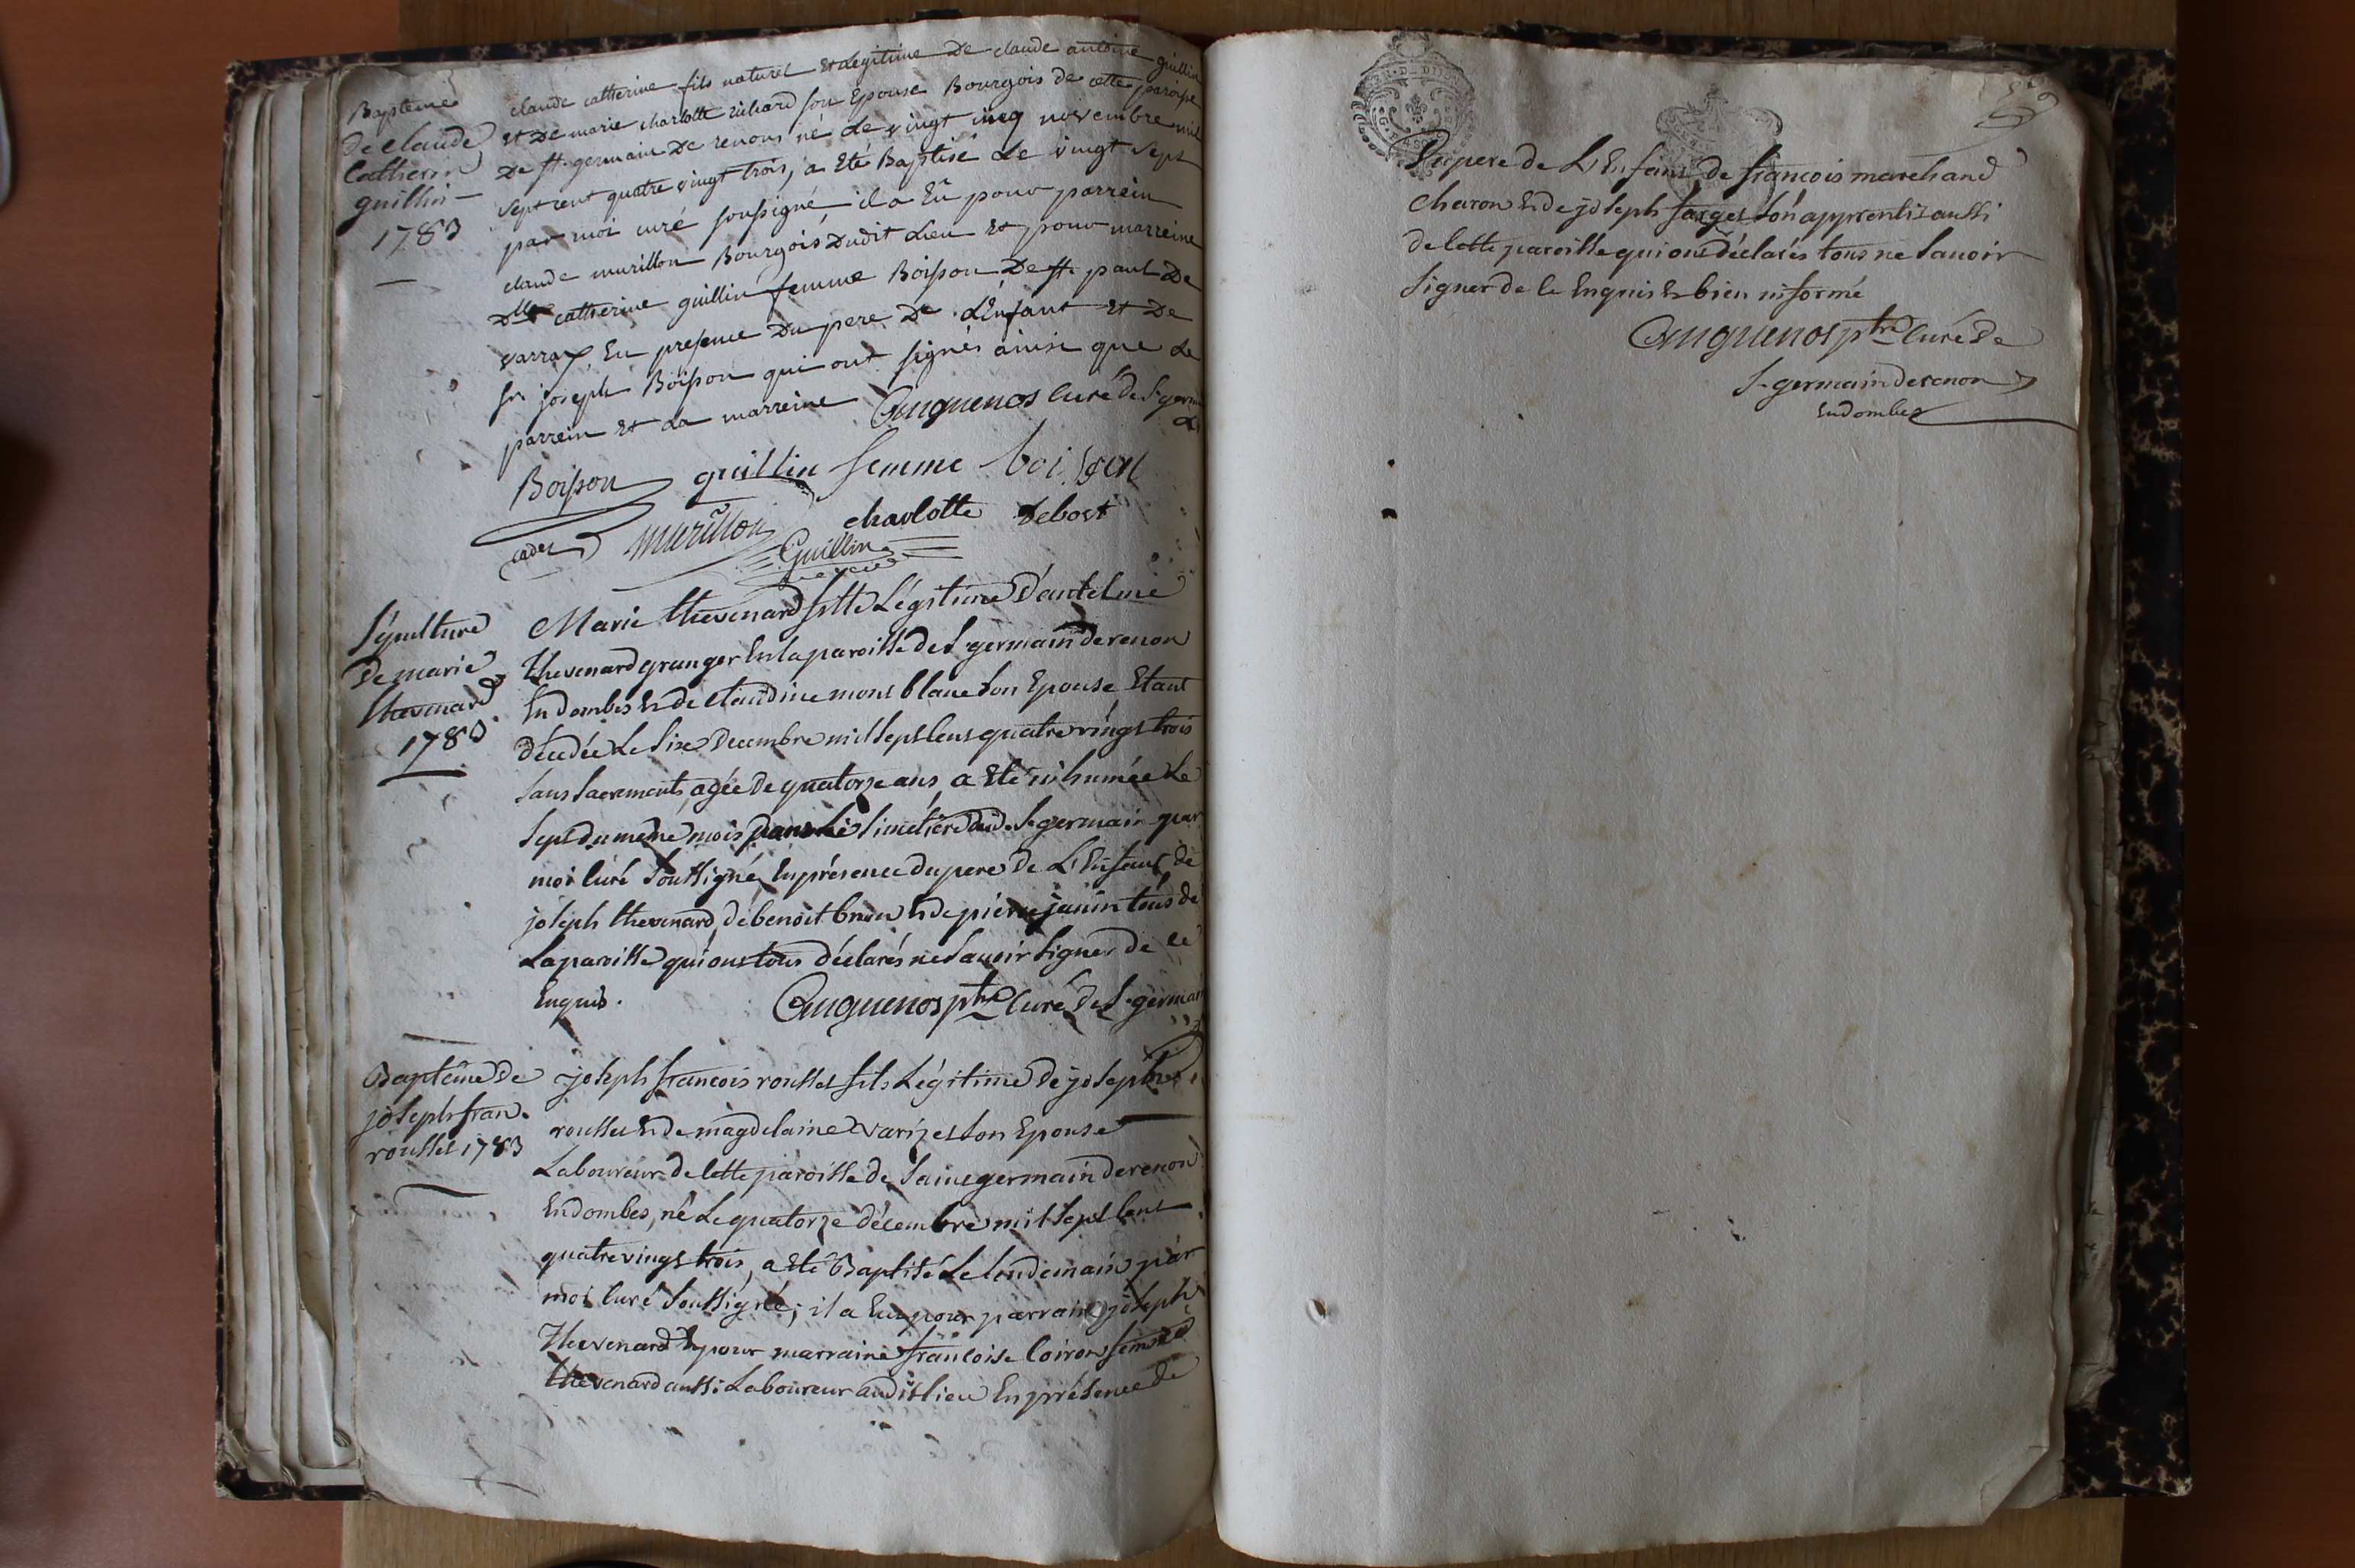 Baptême
de claude
catherin
guillin
1783
claude catherine fils naturel et légitime de claude antoine guillin
et de marie charlotte richard son épouse Bourgois de cette paroisse
de st. germain de renons né le vingt cinq novembre mil
sept cent quatre vingt trois, a été Baptisé le vingt sept
par moi curé soussigné, il a Eû pour parrein
claude murillon Bourgois dudit Lieu et pour marreine
dlle catherine guillin femme Boisson de st. paul de
varrax En presence du pere de L'Enfant et de
sr. joseph Boisson qui ont signés ainsi que le
parrein et la marreine Cuguenos curé de St germ
Boisson guillin femme boisson
cadet murillon charlotte debost
Guillin
Sépulture
de marie
thevenard
1783
Marie thevenard fille Légitime d'antelme
thevenard granger En la paroisse de St germain de renon
En dombes & de claudine mont blanc son Epouse Etant
décedée Le six decembre mil sept cens quatre vingt trois
sans sacrements, agée de quatorze ans, a été inhumée Le
sept du même mois dans le cimetiere dud. St germain par
moi curé soussigné, En présence du pere de L'Enfant, de
joseph thevenard, de benoit brun & de pierre janin tous de
La paroisse qui ont tous déclarés ne savoir signer de ce
Enquis. Cuguenos ptre Curé de St germain
Baptême de
joseph fran.
rousset 1783
joseph françois rousset fils Légitime de joseph
rousset & de magdelaine varizet son Epouse
Laboureur de cette paroisse de saint germain de renon
En dombes, né Le quatorze décembre mil sept cent
quatre vingt trois, a été Baptisé Le lendemain par
moi curé soussigné; il a Eu pour parrain joseph
thevenard & pour marraine françoise Coiron femme
thevenard aussi Laboureur audit lieu En présence de
GEN. DE DIJON
Du pere de L'Enfant, de françois marchand
charon & de joseph farget son apprentis aussi
de cette paroisse qui ont déclarés tous ne savoir
signer de ce Enquis & bien informé
Cuguenos ptre Curé de
St germain de renon
En dombes